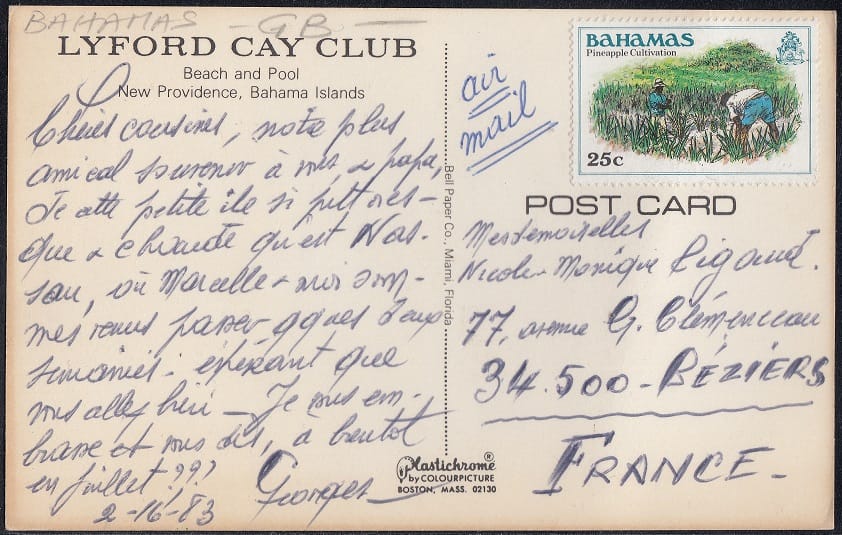 BAHAMAS - GB -
LYFORD CAY CLUB
Beach and Pool
New Providence, Bahama Islands
Chères cousines, notre plus
amical souvenir à vous, & papa,
De cette petite île si pittores-
que & chaude qu'est Nas-
sau, où Marcelle & moi som-
mes venus passer qques deux
semaines. espérant que
vous allez bien - Je vous em-
brasse et vous dis, à bientot
en juillet ???
Georges
2-16-83
Bell Paper Co., Miami, Florida
Plastichrome®
by COLOURPICTURE
BOSTON, MASS. 02130
air
mail
BAHAMAS
Pineapple Cultivation
25c
POST CARD
Mesdemoiselles
Nicole - Monique Rigaud.
77, avenue G. Clémenceau
34.500 - BÉZIERS
FRANCE -